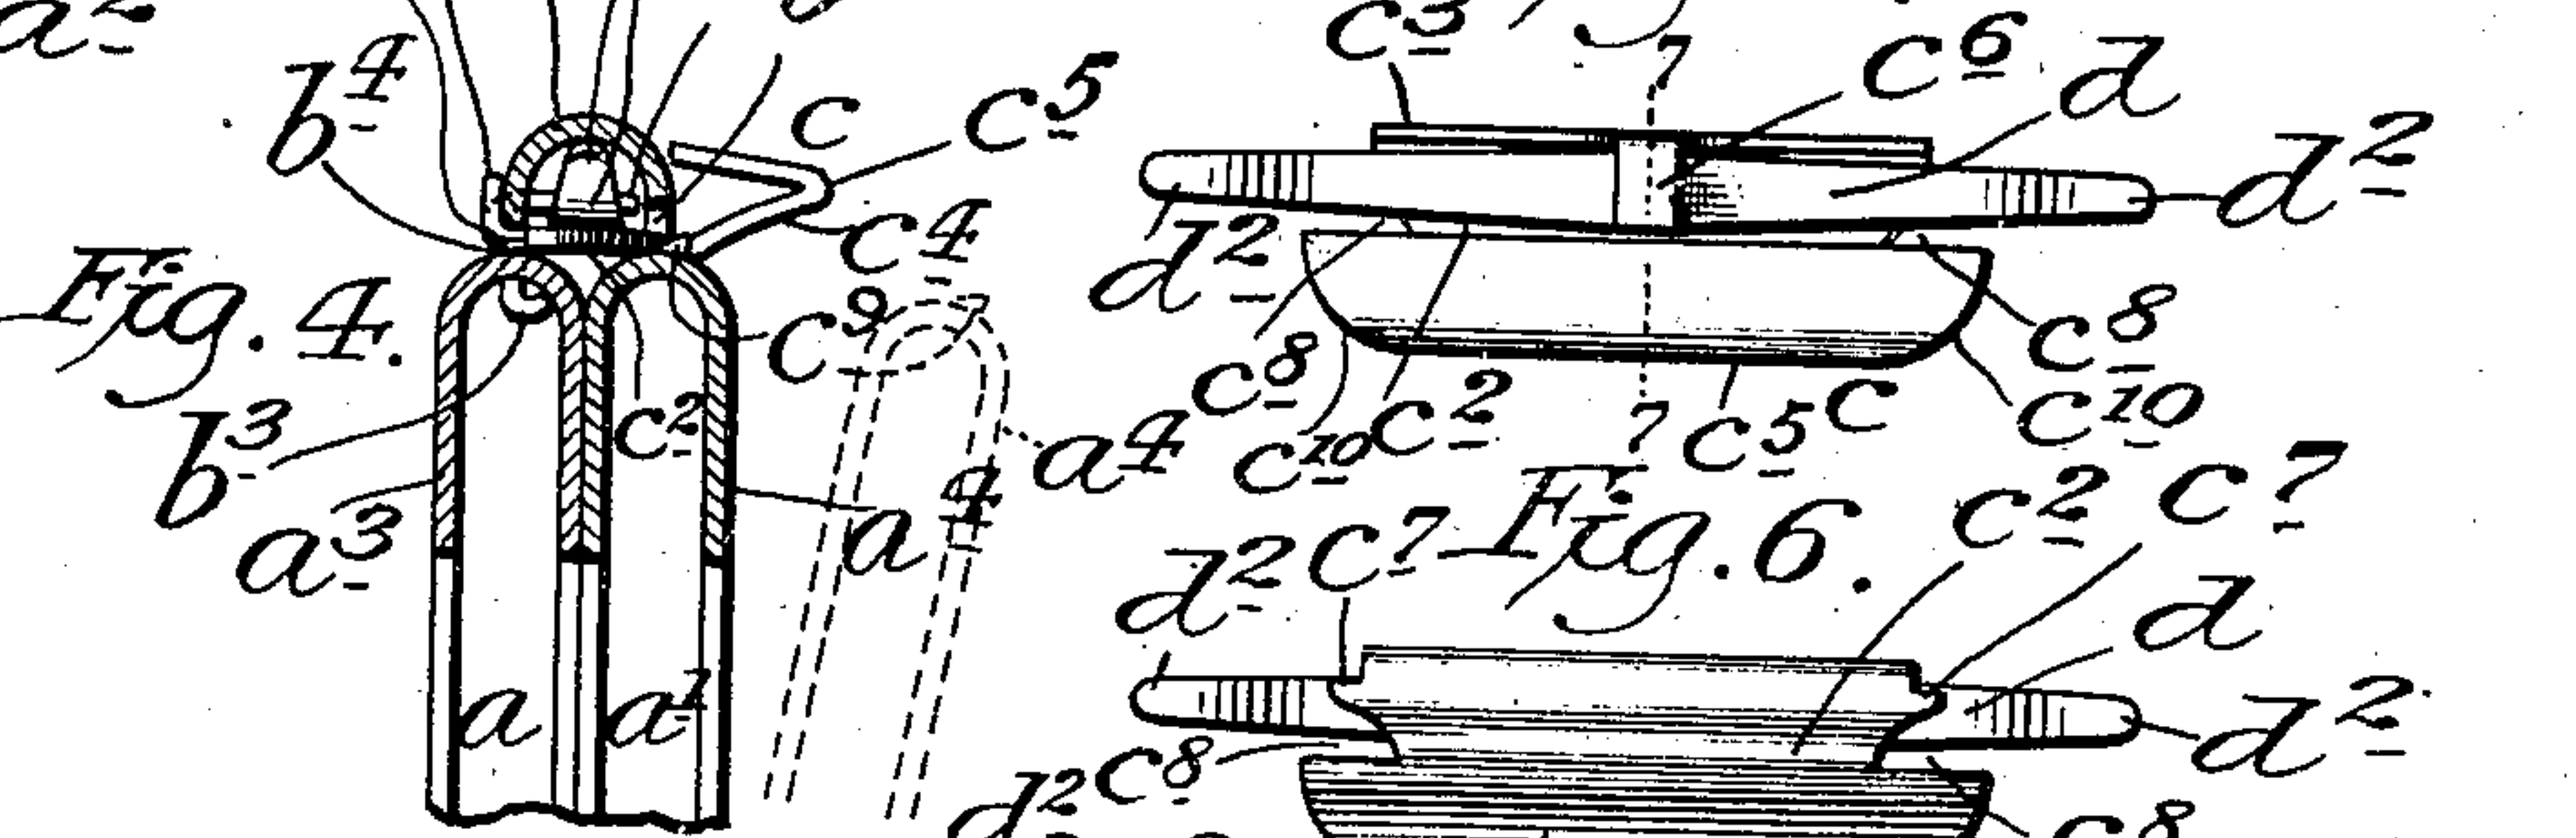 a²
b⁴
c
c⁵
c⁴
Fig. 4.
c⁹
b³
c²
a³
a
a⁴
a⁴
a
a¹
c³
7
c⁶
d
d²
d²
c⁸
c⁸
c¹⁰
c²
7
c⁵
c
c¹⁰
Fig. 6.
c²
c⁷
d²
c⁷
d
d²
c⁸
d²
c⁸